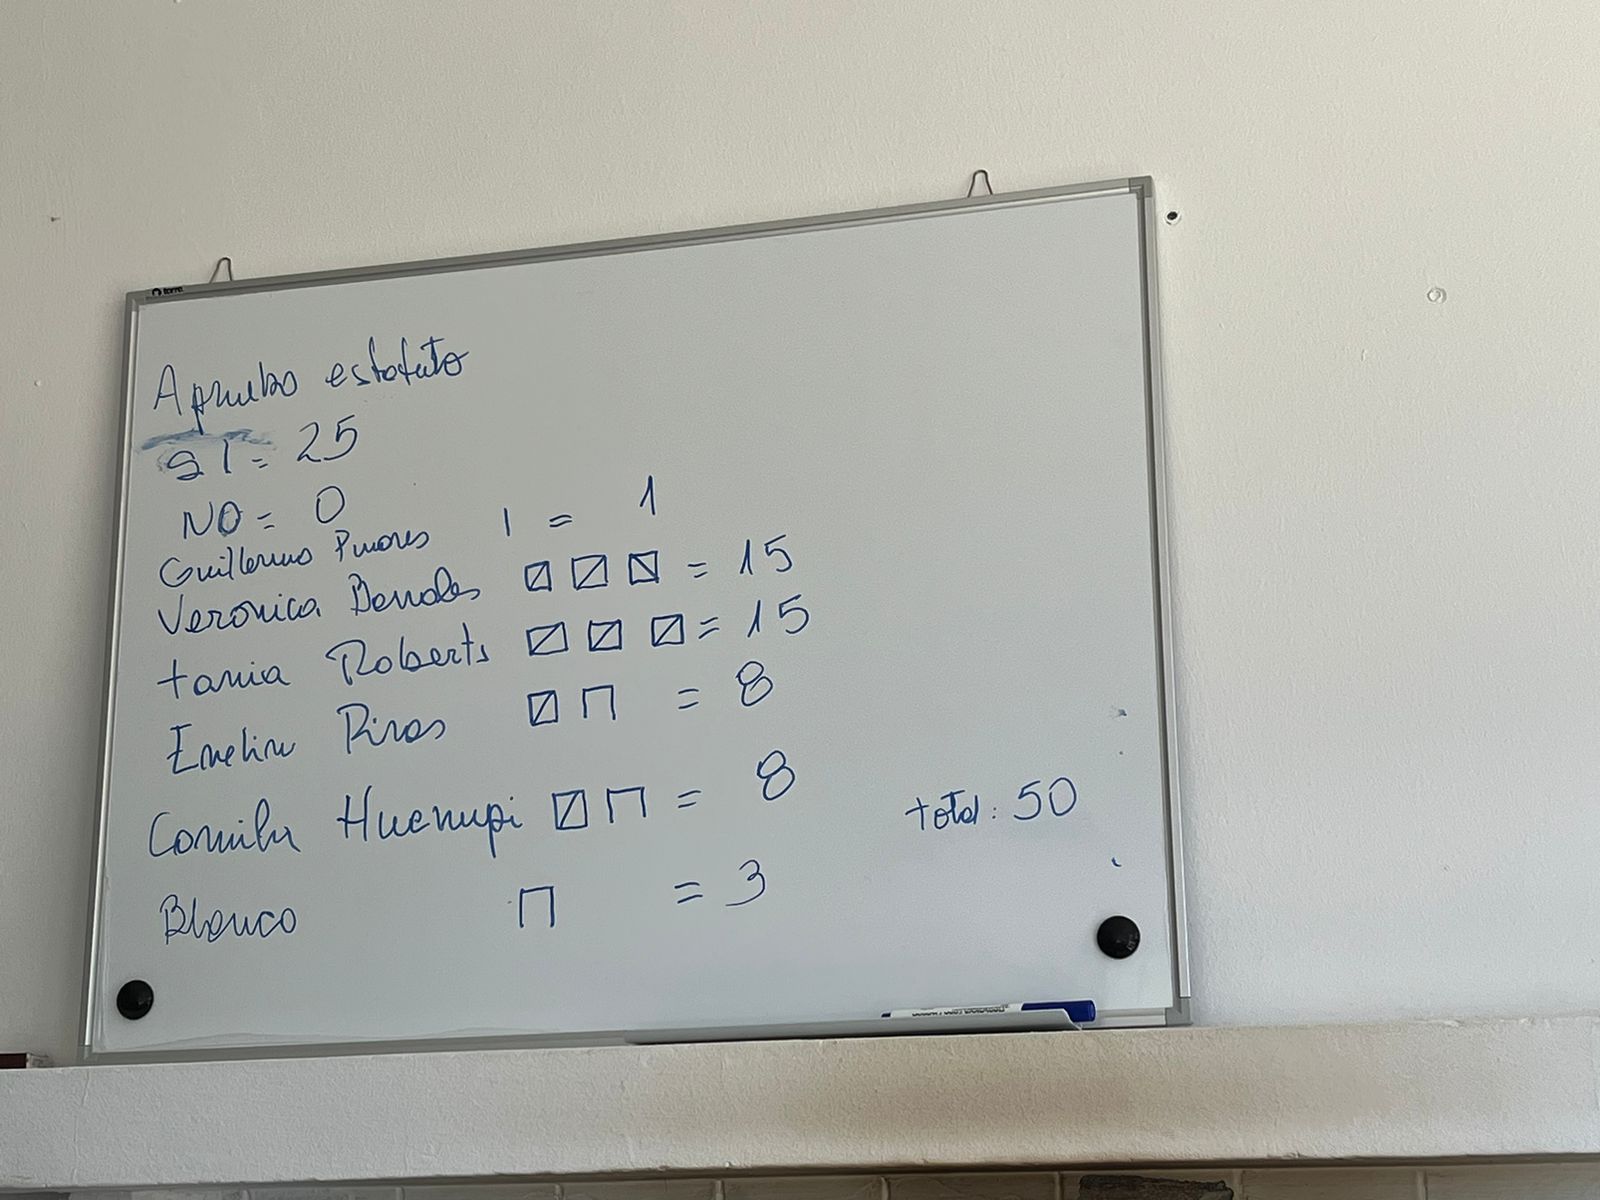 Apruebo estatuto
SI = 25
NO = 0
Guillermo I = 1
Verónica = 15
tania Roberts = 15
Emelin = 8
Camila Huenupi = 8
total: 50
Blanco = 3